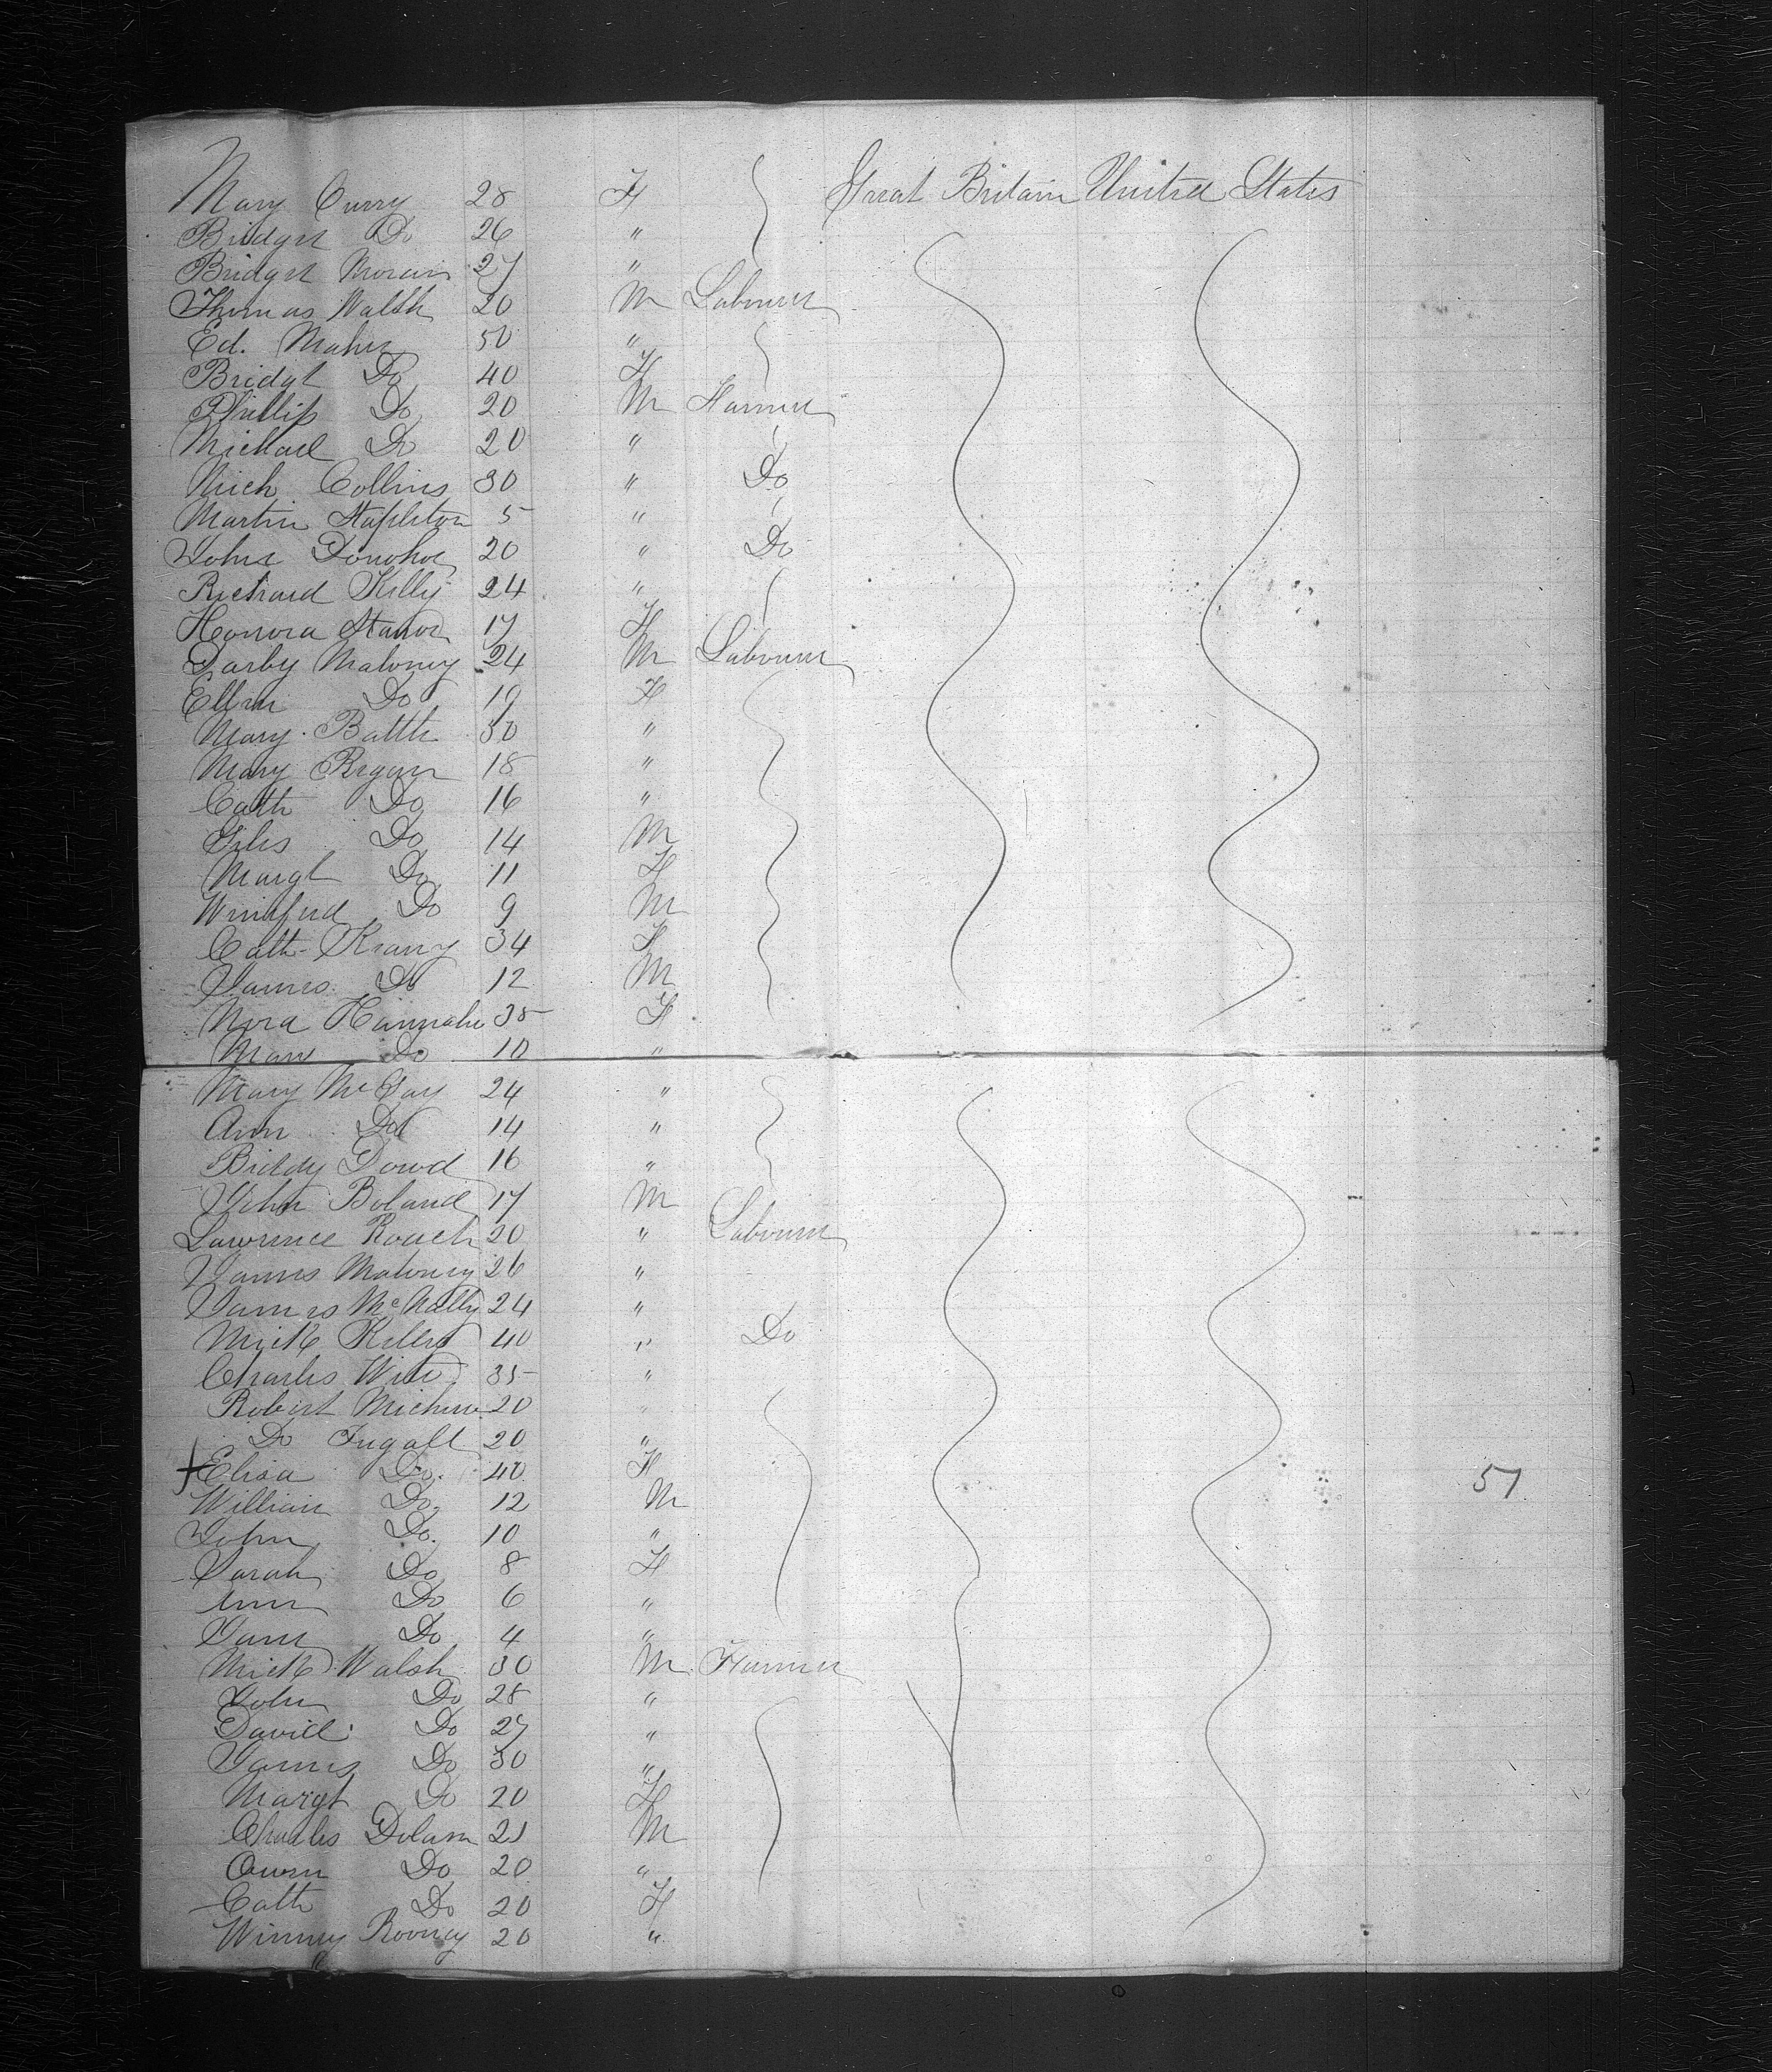 Mary Curry 28 F Great Britain United States
Bridget Do 26 "
Bridget Moran 27 "
Thomas Walsh 20 M Labourer
Ed. Maher 50 "
Bridgt Do 40 F
Phillip Do 20 M Farmer
Michael Do 20 "
Mich Collins 30 " Do
Martin Stapleton 5 "
John Donohoe 20 " Do
Richard Kelly 24 "
Honora 17 F
Darby Maloney 24 M Labourer
Ellen Do 19 F
Mary Battle 30 "
Mary Regan 18 "
Cath Do 16 "
Giles Do 14 M
Margt Do 11 F
Winifred Do 9 M
Cath Keany 34 F
James Do 12 M
Nora 35 F
Mary Do 10 "
Mary McGay 24 "
Ann Do 14 "
Biddy Dowd 16 "
John Boland 17 M
Lawrence Roach 20 " Labourer
James Maloney 26 "
James McNally 24 "
Mick Kelly 40 " Do
Charles 35 "
Robert 20 "
Do Fugall 20 "
Elisa Do. 40 F 57
William Do. 12 M
John Do. 10 "
Sarah Do 8 F
Ann Do 6 "
Jane Do 4 "
Mick Walsh 30 M Farmer
John Do 28 "
David Do 27 "
James Do 30 "
Margt Do 20 F
Charles Dolan 21 M
Owen Do 20 "
Cath Do 20 F
Winny Rooney 20 "